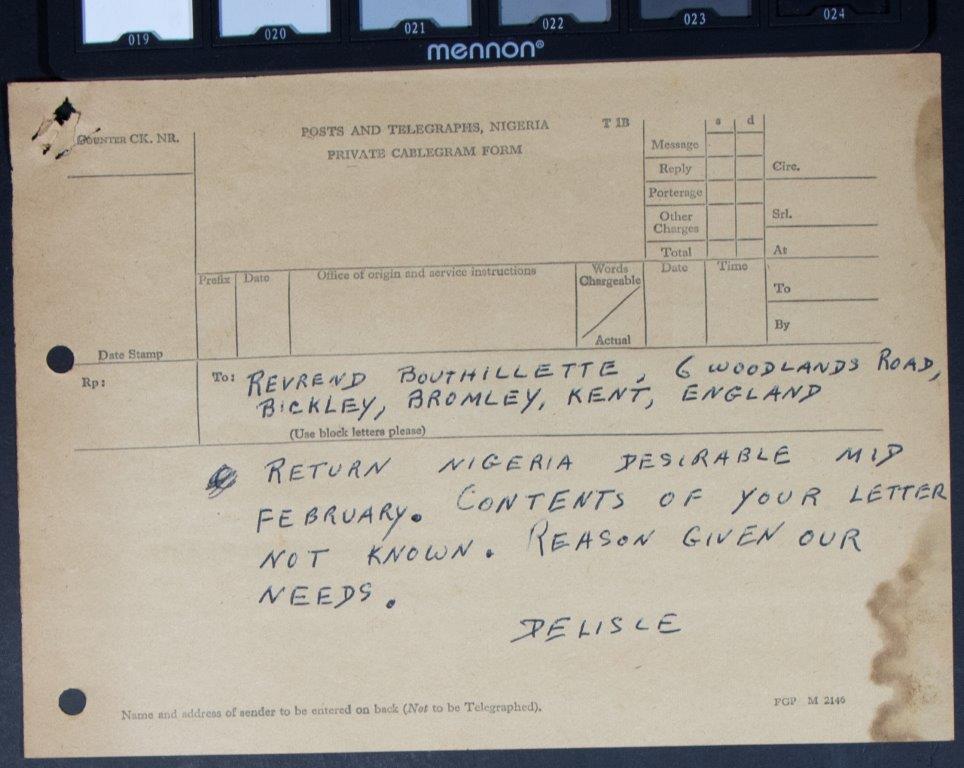 019 020 021 022 023 024
mennon®
COUNTER CK. NR.
POSTS AND TELEGRAPHS, NIGERIA
PRIVATE CABLEGRAM FORM
T 1B
s d
Message
Reply
Porterage
Other Charges
Total
Circ.
Srl.
At
To
By
Prefix Date Office of origin and service instructions Words Chargeable Actual Date Time
Date Stamp
Rp:
To: REVREND BOUTHILLETTE, 6 WOODLANDS ROAD,
BICKLEY, BROMLEY, KENT, ENGLAND
(Use block letters please)
RETURN NIGERIA DESIRABLE MID
FEBRUARY. CONTENTS OF YOUR LETTER
NOT KNOWN. REASON GIVEN OUR
NEEDS.
DELISLE
Name and address of sender to be entered on back (Not to be Telegraphed).
PGP M 2146